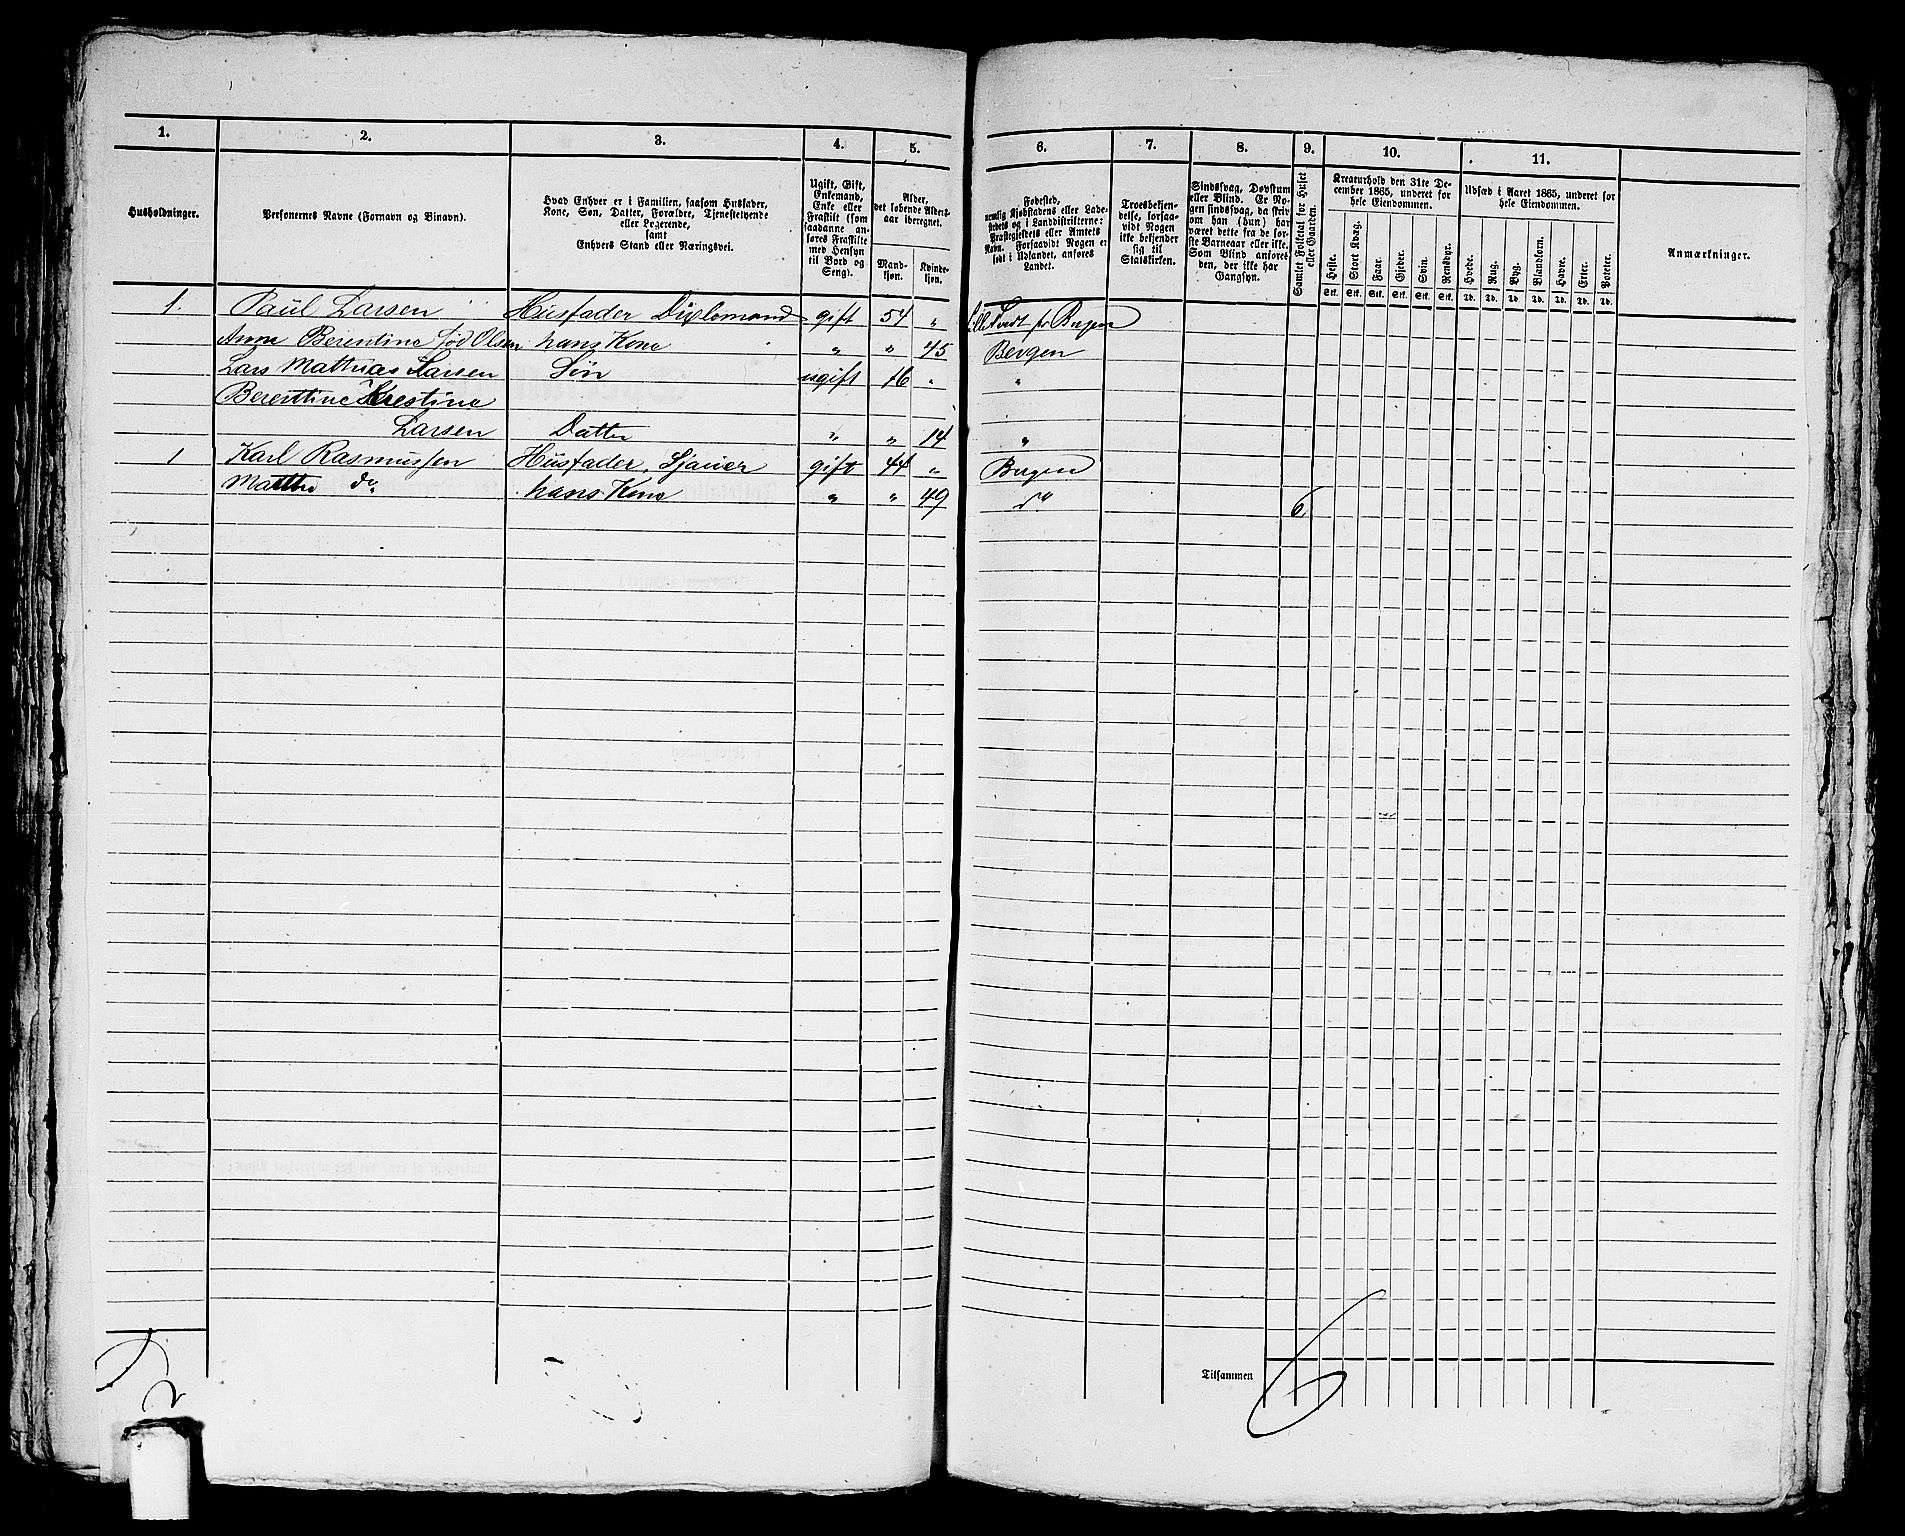 1. 2. 3. 4. 5. 6. 7. 8. 9. 10. 11.
Husholdninger.
Personernes Navne (Fornavn og Binavn).
Hvad Enhver er i Familien, saasom Husfader,
Kone, Søn, Datter, Forældre, Tjenestetyende
eller Logerende,
samt
Enhvers Stand eller Næringsvei.
Ugift, Gift,
Enkemand,
Enke eller
Fraskilt (som
saadanne an-
føres Fraskilte
med Hensyn
til Bord og
Seng).
Alder,
det løbende Alders-
aar iberegnet.
Mand-
kjøn.
Kvinde-
kjøn.
Fødested,
nemlig Kjøbstadens eller Lade-
stedets og i Landdistrikterne:
Præstegjeldets eller Amtets
Navn. Forsaavidt Nogen er
født i Udlandet, anføres
Landet.
Troesbekjen-
delse, forsaa-
vidt Nogen
ikke bekjender
sig til
Statskirken.
Sindssvag, Døvstum
eller Blind. Er No-
gen sindssvag, da skriv
om han (hun) har
været dette fra de før-
ste Barneaar eller ikke.
Som Blind anføres
den, der ikke har
Gangsyn.
Samlet Folketal for Huset
eller Gaarden.
Kreaturhold den 31te De-
cember 1865, underet for
hele Eiendommen.
Heste. Stort Kvæg. Faar. Gjeder. Svin. Rensdyr.
Stk. Stk. Stk. Stk. Stk. Stk.
Udsæd i Aaret 1865, underet for
hele Eiendommen.
Hvede. Rug. Byg. Blandkorn. Havre. Erter. Poteter.
Td. Td. Td. Td. Td. Td. Td.
Anmærkninger.
1. Paul Larsen Husfader Diplomand gift 54 " Bergen
Anna Berentine fød Olsen hans Kone " " 45 Bergen
Lars Mathias Larsen Søn ugift 16 " "
Berentine Kristine
Larsen Datter " " 14 "
1 Karl Rasmussen Husfader, Sjauer gift 44 " Bergen
Marthe do hans Kone " " 49 do 6
Tilsammen 6
2